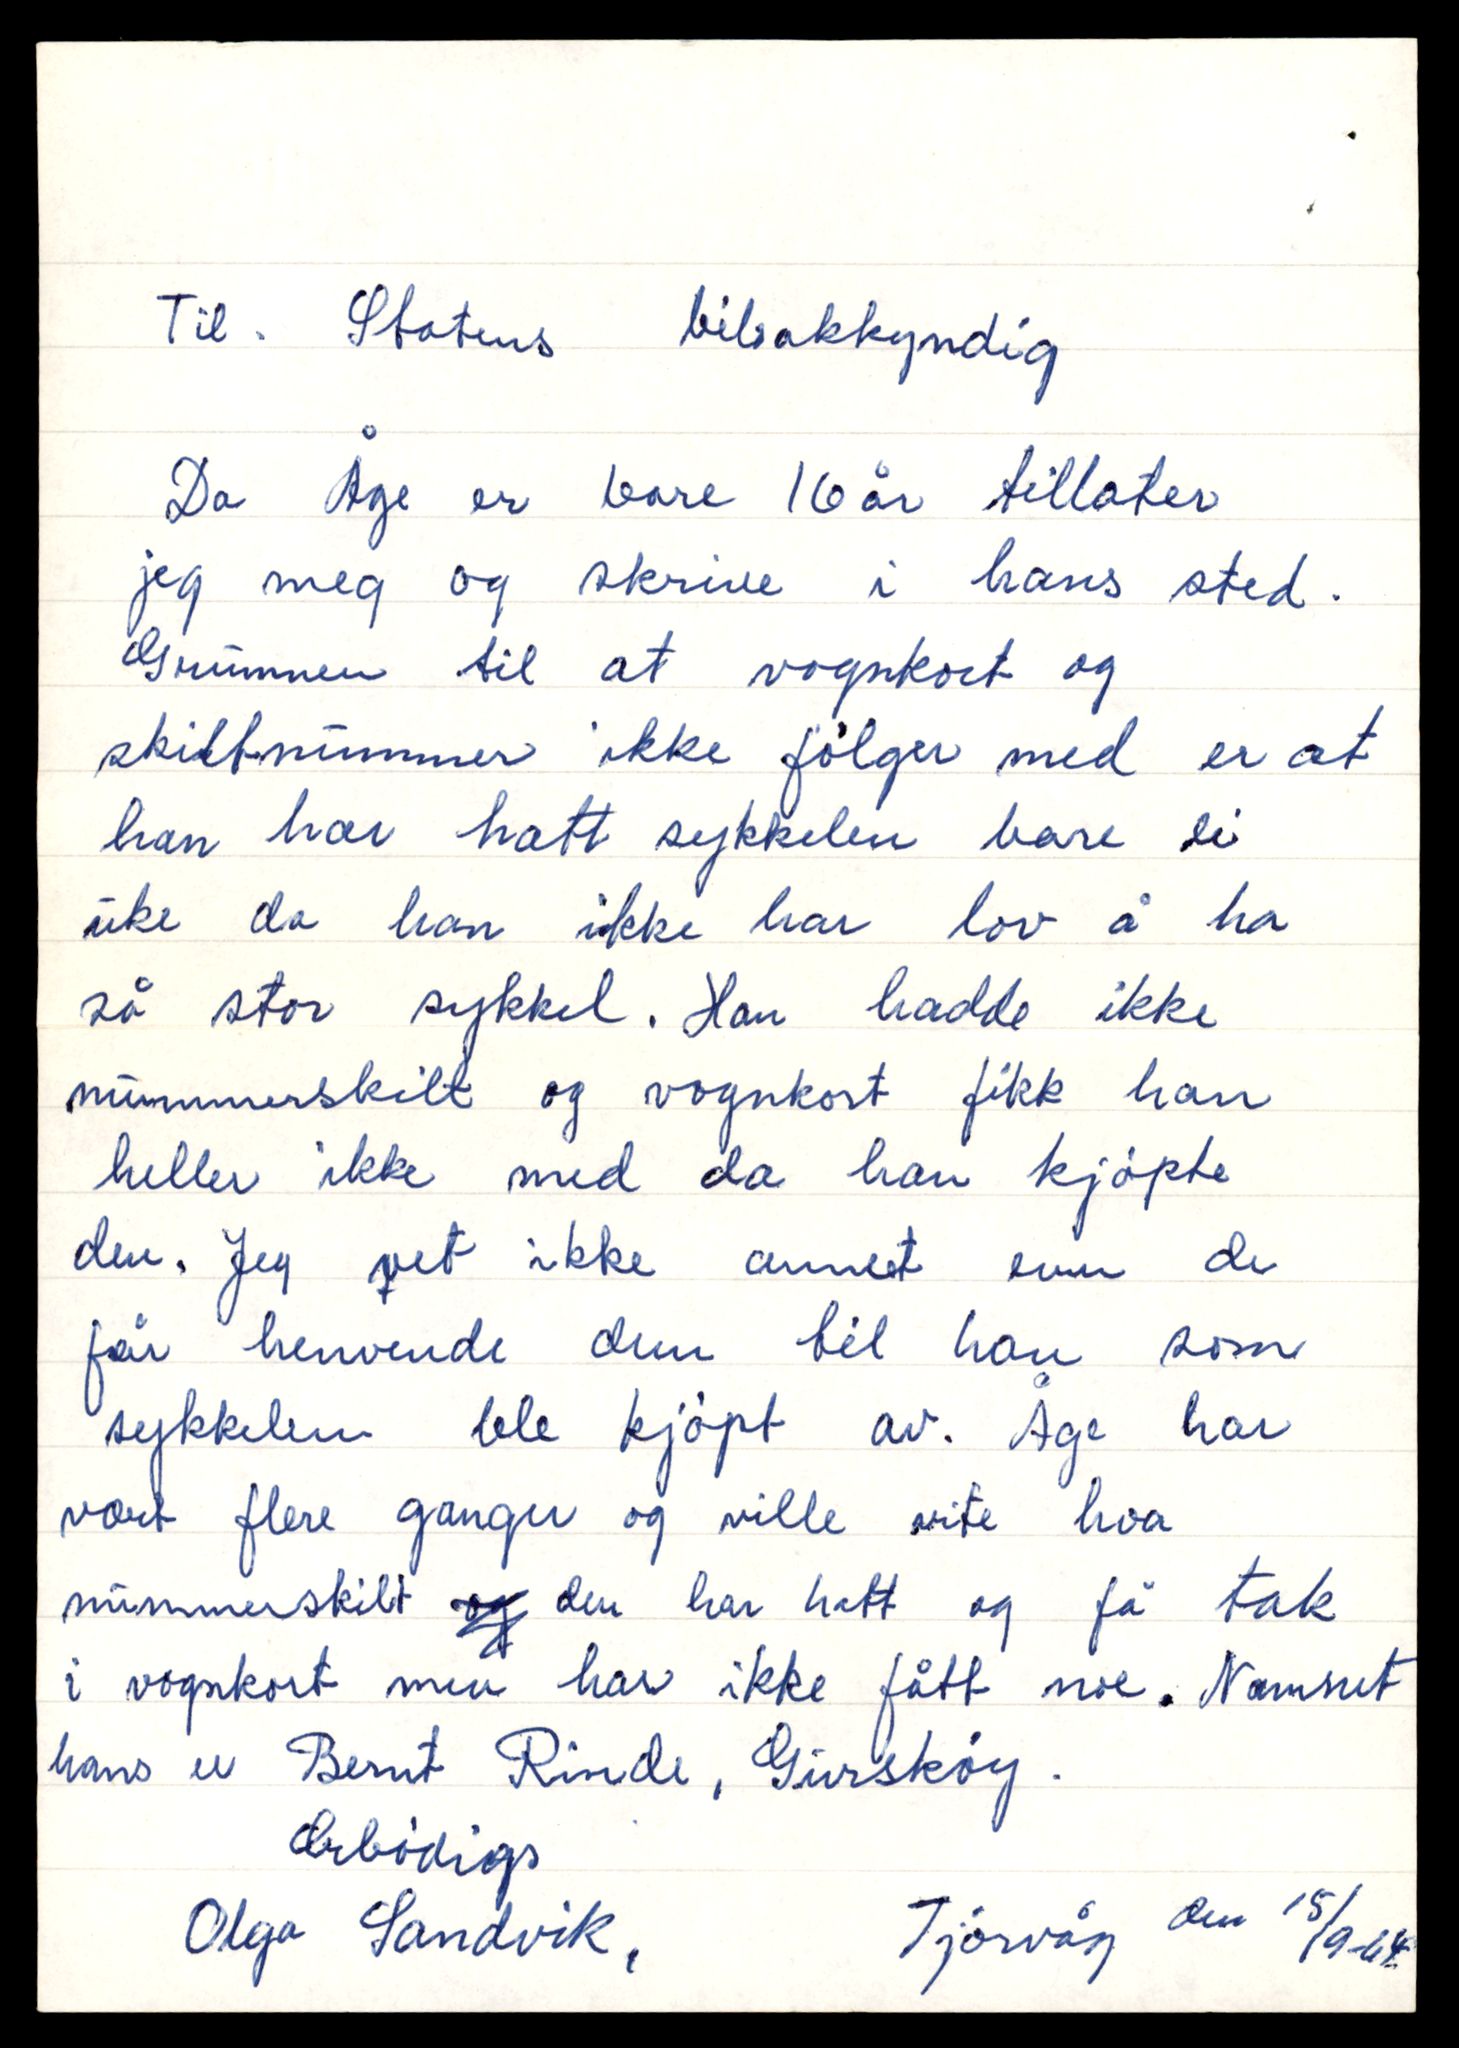 Til. Statens bilsakkyndig
Da Åge er bare 16 år tillater
jeg meg og skrive i hans sted.
Grunnen til at vognkort og
skiltnummer ikke følger med er at
han har hatt sykkelen bare ei
uke da han ikke har lov å ha
så stor sykkel. Han hadde ikke
nummerskilt og vognkort fikk han
heller ikke med da han kjöpte
den. Jeg vet ikke annet enn de
får henvende dem til han som
sykkelen ble kjöpt av. Åge har
vært flere ganger og ville vite hva
nummerskilt og den har hatt og få tak
i vognkort men har ikke fått noe. Namnet
hans er Bernt Rinde, Gurskøy.
Ærbödigs
Olga Sandvik, Tjörvåg den 15/9-64